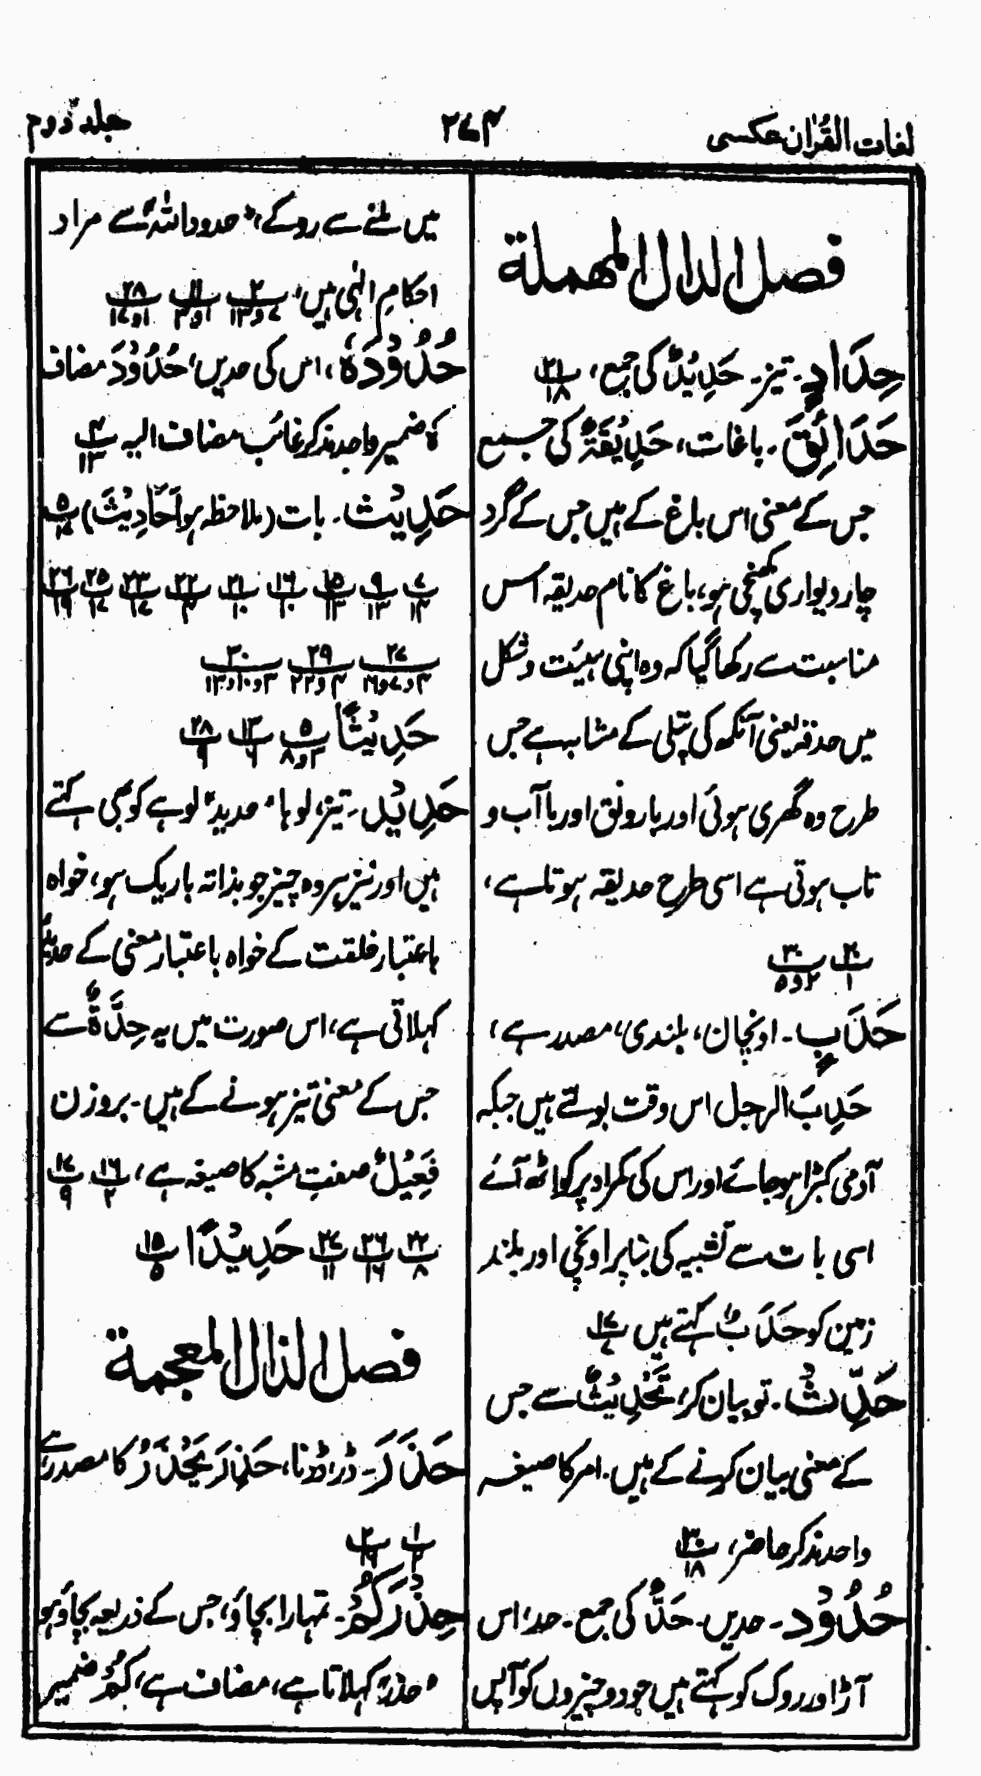 لغات القرآن عکسی
۲۷۴
جلد دوم
فصل الدال المهملة
حِدَادٍ۔ تیز۔ حَدِیْدٌ کی جمع، ۲۱/۱۸
حَدَائِقَ۔ باغات، حَدِیْقَۃٌ کی جمع
جس کے معنی اس باغ کے ہیں جس کے گرد
چار دیواری کھنچی ہو، باغ کا نام حدیقہ اس
مناسبت سے رکھا گیا کہ وہ اپنی ہیئت و شکل
میں حدقہ یعنی آنکھ کی پتلی کے مشابہ ہے جس
طرح وہ گھری ہوئی اور بارونق اور با آب و
تاب ہوتی ہے اسی طرح حدیقہ ہوتا ہے،
۲۰/۱ ۳۰/۲و۵
حَدَبٍ۔ اونچان، بلندی، مصدر ہے،
حَدِبَ الرجل اس وقت بولتے ہیں جبکہ
آدمی کبڑا ہو جائے اور اس کی کمر اوپر کو اٹھ آئے
اسی بات سے تشبیہ کی بنا پر اونچی اور بلند
زمین کو حَدَبٌ کہتے ہیں ۱۷/۷
حَدِّثْ۔ تو بیان کر، تَحْدِیْثٌ سے جس
کے معنی بیان کرنے کے ہیں۔ امر کا صیغہ
واحد مذکر حاضر، ۳۰/۱۸
حُدُوْد۔ حدیں۔ حَدٌّ کی جمع۔ حد، اس
آڑ اور روک کو کہتے ہیں جو دو چیزوں کو آپس
میں ملنے سے روکے، "حدود اللہ" سے مراد
احکامِ الٰہی ہیں، ۲/۷و۱۳ ۱۱/۱و۳ ۲۸/۱و۱۷
حُدُوْدَہٗ، اس کی حدیں، حُدُوْدَ مضاف
ہٗ ضمیر واحد مذکر غائب مضاف الیہ ۴/۱۳
حَدِیْث۔ بات (ملاحظہ ہو اَحَادِیْثَ) ۵/۱۷
۷/۱۴ ۹/۱۳ ۱۵/۱۳ ۱۶/۱۰ ۲۱/۱۰ ۲۲/۴ ۲۳/۱۷ ۲۵/۱۷ ۲۶/۱۹
۲۷/۴و۷و۱۶ ۲۹/۴و۲۲ ۳۰/۳و۱۰و۱۳
حَدِیْثًا ۵/۳و۸ ۱۳/۶ ۲۸/۹
حَدِیْد۔ تیز، لوہا، "حدید" لوہے کو بھی کہتے
ہیں اور نیز ہر وہ چیز جو بذاتہ باریک ہو، خواہ
باعتبار خلقت کے خواہ باعتبار معنی کے حدید
کہلاتی ہے، اس صورت میں یہ حِدَّۃٌ سے
جس کے معنی تیز ہونے کے ہیں۔ بروزن
فَعِیْلٌ صفتِ مشبہ کا صیغہ ہے، ۱۶/۲ ۱۷/۹
۲۲/۸ ۲۶/۱۶ ۲۷/۱۱ حَدِیْدًا ۱۵/۵
فصل الذال المعجمة
حَذَرَ۔ ڈر، ڈرنا، حَذِرَ یَحْذَرُ کا مصدر ہے
۱/۲ ۲/۱۶
حِذْرَکُمْ۔ تمہارا بچاؤ، جس کے ذریعہ بچاؤ ہو
"حذر" کہلاتا ہے، مضاف ہے، کُمْ ضمیر